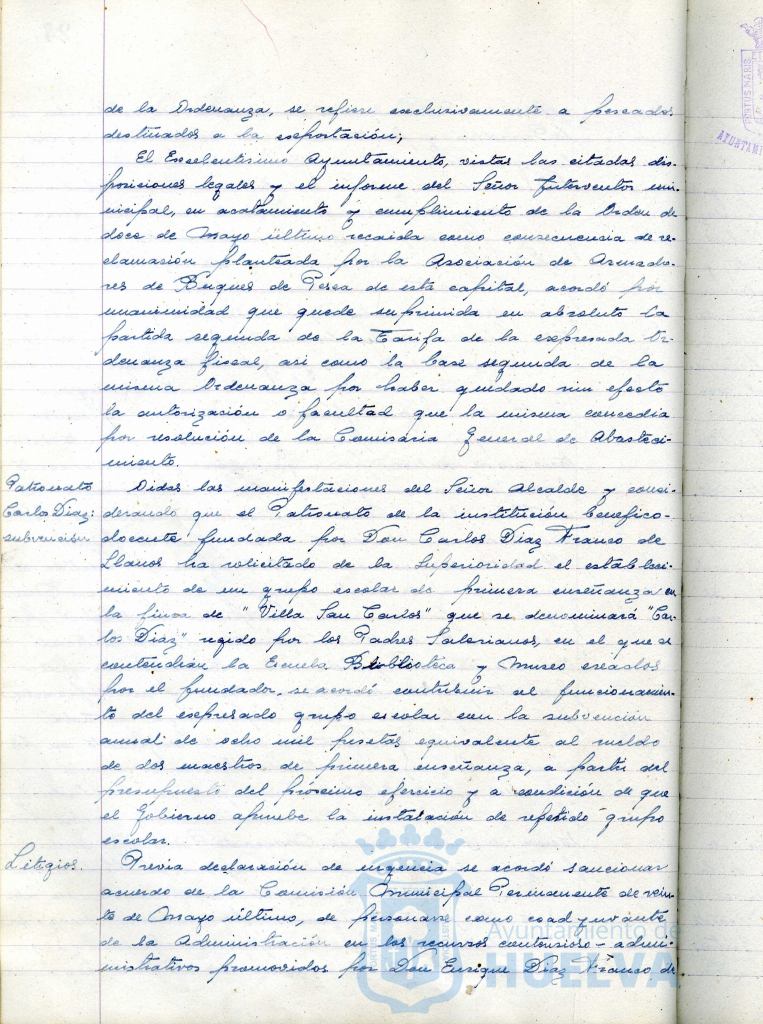 de la Ordenanza, se refiere exclusivamente a pescados
destinados a la exportación;
El Excelentísimo Ayuntamiento, vistas las citadas dis-
posiciones legales y el informe del Señor Interventor mu-
nicipal, en acatamiento y cumplimiento de la Orden de
doce de Mayo último recaida como consecuencia de re-
clamación planteada por la Asociación de Armado-
res de Buques de Pesca de esta capital, acordó por
unanimidad que quede suprimida en absoluto la
partida segunda de la Tarifa de la expresada Or-
denanza fiscal, asi como la base segunda de la
misma Ordenanza por haber quedado sin efecto
la autorización o facultad que la misma concedia
por resolución de la Comisaria General de Abasteci-
miento.
Patronato
Carlos Diaz:
subvención
Oidas las manifestaciones del Señor Alcalde y consi-
derando que el Patronato de la institución benefico-
docente fundada por Don Carlos Diaz Franco de
Llanos ha solicitado de la Superioridad el estableci-
miento de un grupo escolar de primera enseñanza en
la finca de "Villa San Carlos" que se denominará "Car-
los Diaz" regido por los Padres Salesianos, en el que se
contendrán la Escuela Biblioteca y Museo creados
por el fundador, se acordó contribuir al funcionamien-
to del expresado grupo escolar con la subvención
anual de ocho mil pesetas equivalente al sueldo
de dos maestros de primera enseñanza, a partir del
presupuesto del proximo ejercicio y a condición de que
el Gobierno apruebe la instalación de repetido grupo
escolar.
Litigios.
Previa declaración de urgencia se acordó sancionar
acuerdo de la Comisión Municipal Permanente de vein-
te de Mayo último, de personarse como coadyuvante
de la Administración en los recursos contencioso-admi-
nistrativos promovidos por Don Enrique Diaz Franco de
Ayuntamiento de
HUELVA